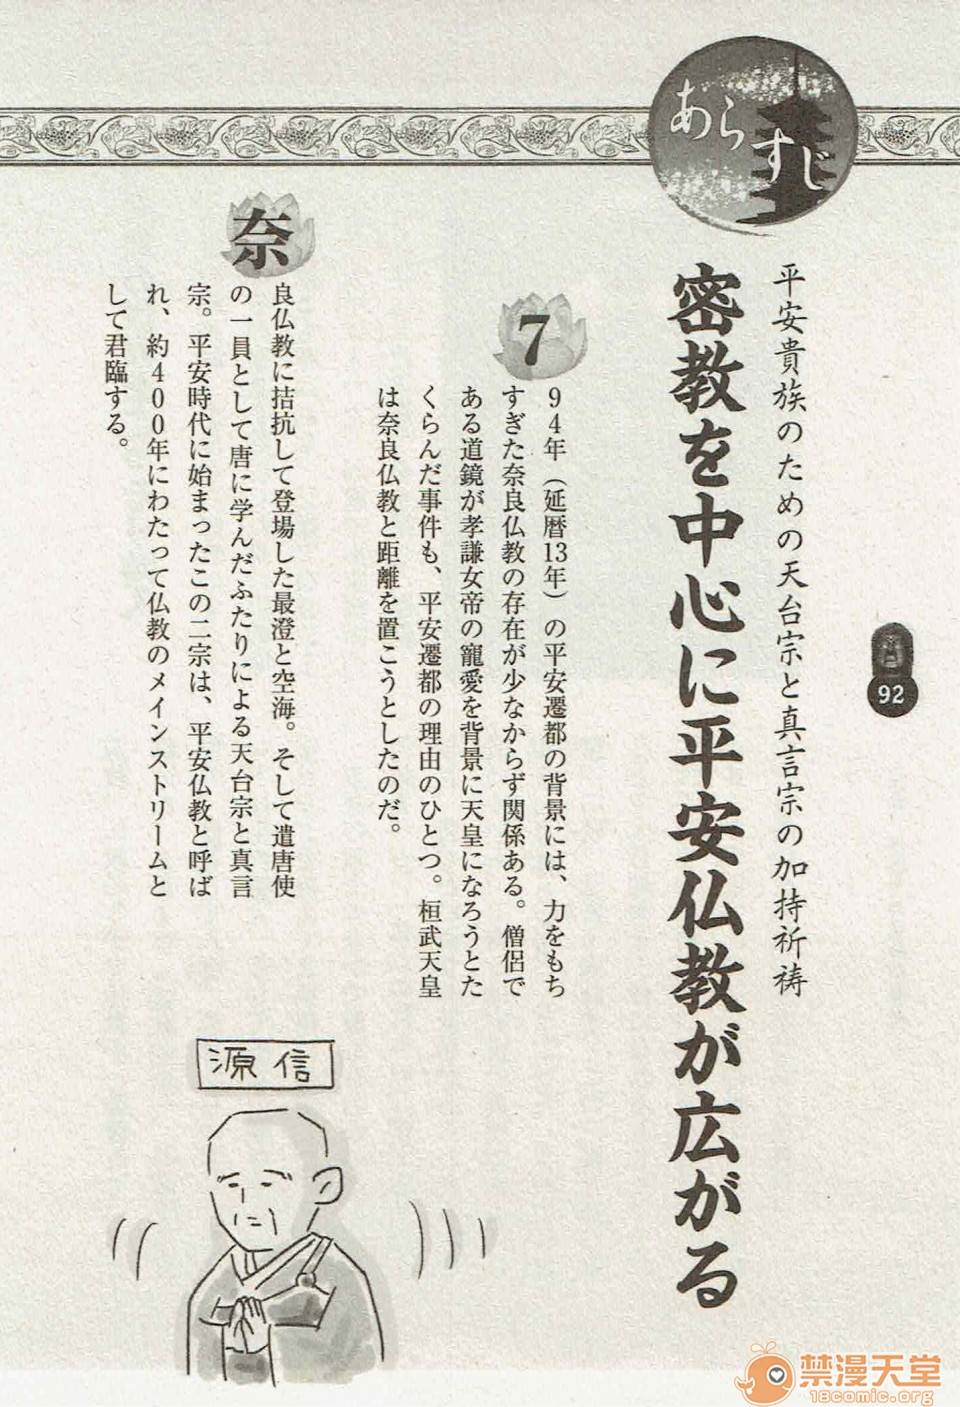 あらすじ
平安貴族のための天台宗と真言宗の加持祈祷
密教を中心に平安仏教が広がる
92
794年（延暦13年）の平安遷都の背景には、力をもち
すぎた奈良仏教の存在が少なからず関係ある。僧侶で
ある道鏡が孝謙女帝の寵愛を背景に天皇になろうとた
くらんだ事件も、平安遷都の理由のひとつ。桓武天皇
は奈良仏教と距離を置こうとしたのだ。
奈良仏教に拮抗して登場した最澄と空海。そして遣唐使
の一員として唐に学んだふたりによる天台宗と真言
宗。平安時代に始まったこの二宗は、平安仏教と呼ば
れ、約400年にわたって仏教のメインストリームと
して君臨する。
源信
禁漫天堂
18comic.org